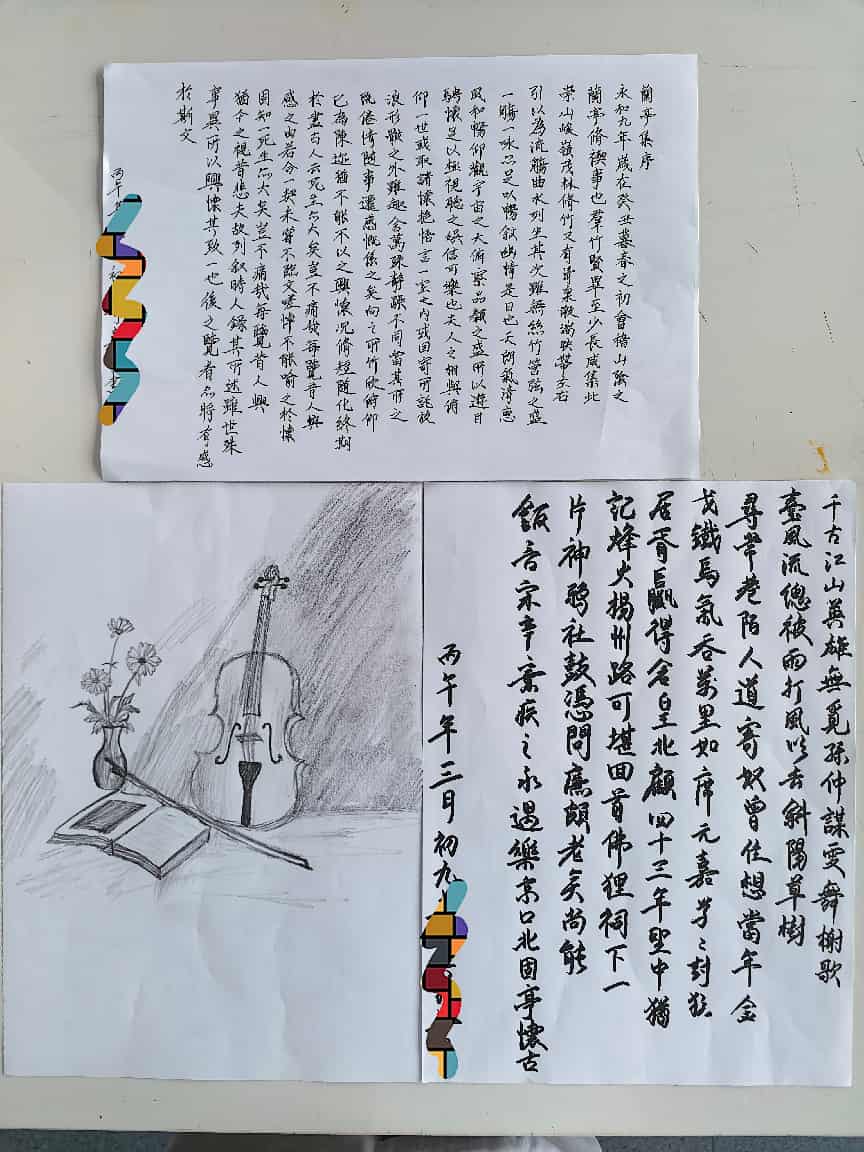 蘭亭集序
永和九年歲在癸丑暮春之初會稽山陰之
蘭亭脩禊事也羣竹賢畢至少長咸集此
崇山峻嶺茂林脩竹又有激湍映帶左右
引以為流觴曲水列坐其次雖無絲竹管弦之盛
一觴一咏亦足以暢叙幽情是日也天朗氣清惠
風和暢仰觀宇宙之大俯察品類之盛所以遊目
騁懷足以極視聽之娛信可樂也夫人之相與俯
仰一世或取諸懷抱悟言一室之內或因寄所託放
浪形骸之外雖趣舍萬殊靜躁不同當其所之
既倦情隨事遷感慨係之矣向之所竹欣俯仰
已為陳迹猶不能不以之興懷況脩短隨化終期
於盡古人云死生亦大矣豈不痛哉每覽昔人興
感之由若合一契未嘗不臨文嗟悼不能喻之於懷
固知一死生亦大矣豈不痛哉每覽昔人興
猶今之視昔悲夫故列叙時人錄其所述雖世殊
事異所以興懷其致一也後之覽者亦將有感
於斯文
丙午
千古江山英雄無覓孫仲謀處舞榭歌
臺風流總被雨打風吹去斜陽草樹
尋常巷陌人道寄奴曾住想當年金
戈鐵馬氣吞萬里如虎元嘉草〻封狼
居胥贏得倉皇北顧四十三年望中猶
記烽火揚州路可堪回首佛狸祠下一
片神鴉社鼓憑問廉頗老矣尚能
飯否宋辛棄疾之永遇樂京口北固亭懷古
丙午年三月初九